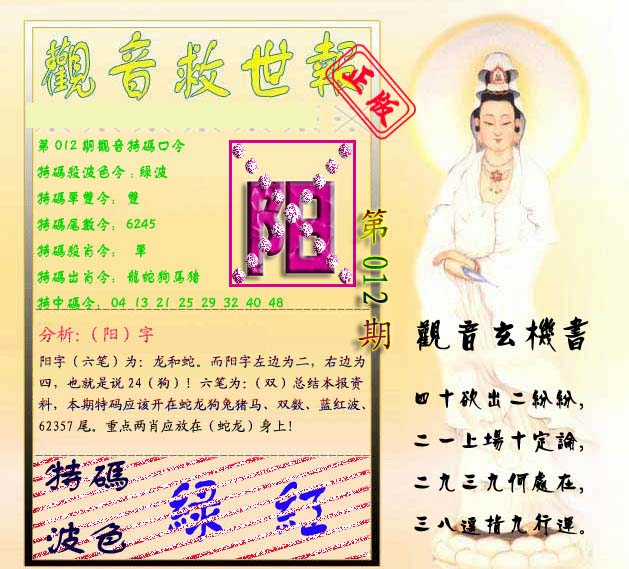 觀音救世報
正版
第012期觀音特碼口令
特碼殺波色令:綠波
特碼單雙令: 雙
特碼尾數令: 6245
特碼殺肖令: 單
特碼出肖令: 龍蛇狗馬猪
特中碼令: 04 13 21 25 29 32 40 48
阳
第012期
分析:(阳)字
阳字(六笔)为:龙和蛇。而阳字左边为二,右边为
四,也就是说24(狗)!六笔为:(双)总结本报资
料,本期特码应该开在蛇龙狗兔猪马、双数、蓝红波、
62357尾。重点两肖应放在(蛇龙)身上!
特碼
波色
綠 紅
觀音玄機書
四十欲出二紛紛,
二一上場十定論,
二九三九何處在,
三八運指九行運。